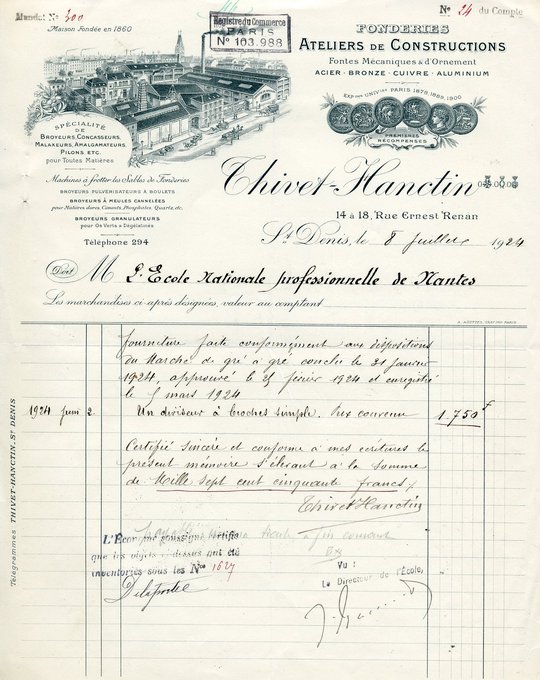 Mandat N° 300
N° 24 du Compte
Maison Fondée en 1860
Registre du Commerce
PARIS
N° 103.988
FONDERIES
ATELIERS DE CONSTRUCTIONS
Fontes Mécaniques & d'Ornement
ACIER - BRONZE - CUIVRE - ALUMINIUM
EXPons UNIVles PARIS 1878, 1889, 1900
PREMIÈRES
RÉCOMPENSES
SPÉCIALITÉ
DE
BROYEURS, CONCASSEURS,
MALAXEURS, AMALGAMATEURS
PILONS, ETC.
pour Toutes Matières
Machines à frotter les Sables de Fonderies
BROYEURS PULVÉRISATEURS À BOULETS
BROYEURS À MEULES CANNELÉES
pour Matières dures, Ciments, Phosphates, Quartz, etc.
BROYEURS GRANULATEURS
pour Os Verts & Dégélatinés
Téléphone 294
Thivet-Hanctin
14 à 18, Rue Ernest Renan
St Denis, le 8 Juillet 1924
Doit M L'Ecole Nationale professionnelle de Nantes
Les marchandises ci-après désignées, valeur au comptant
Fourniture faite conformément aux dispositions
du Marché de gré à gré conclu le 31 Janvier
1924, approuvé le 25 février 1924 et enregistré
le 5 mars 1924
1924 Juin 2 Un diviseur à broches simple. Prix convenu 1.750 f
Certifié sincère et conforme à mes écritures le
présent mémoire s'élevant à la somme
de Mille sept cent cinquante francs
Thivet Hanctin
L'Econome soussigné certifie
que les objets ci-dessus ont été
inventoriés sous les Nos 1627
Delaporte
Vu :
Le Directeur de l'École,
Télégrammes, THIVET-HANCTIN, ST DENIS